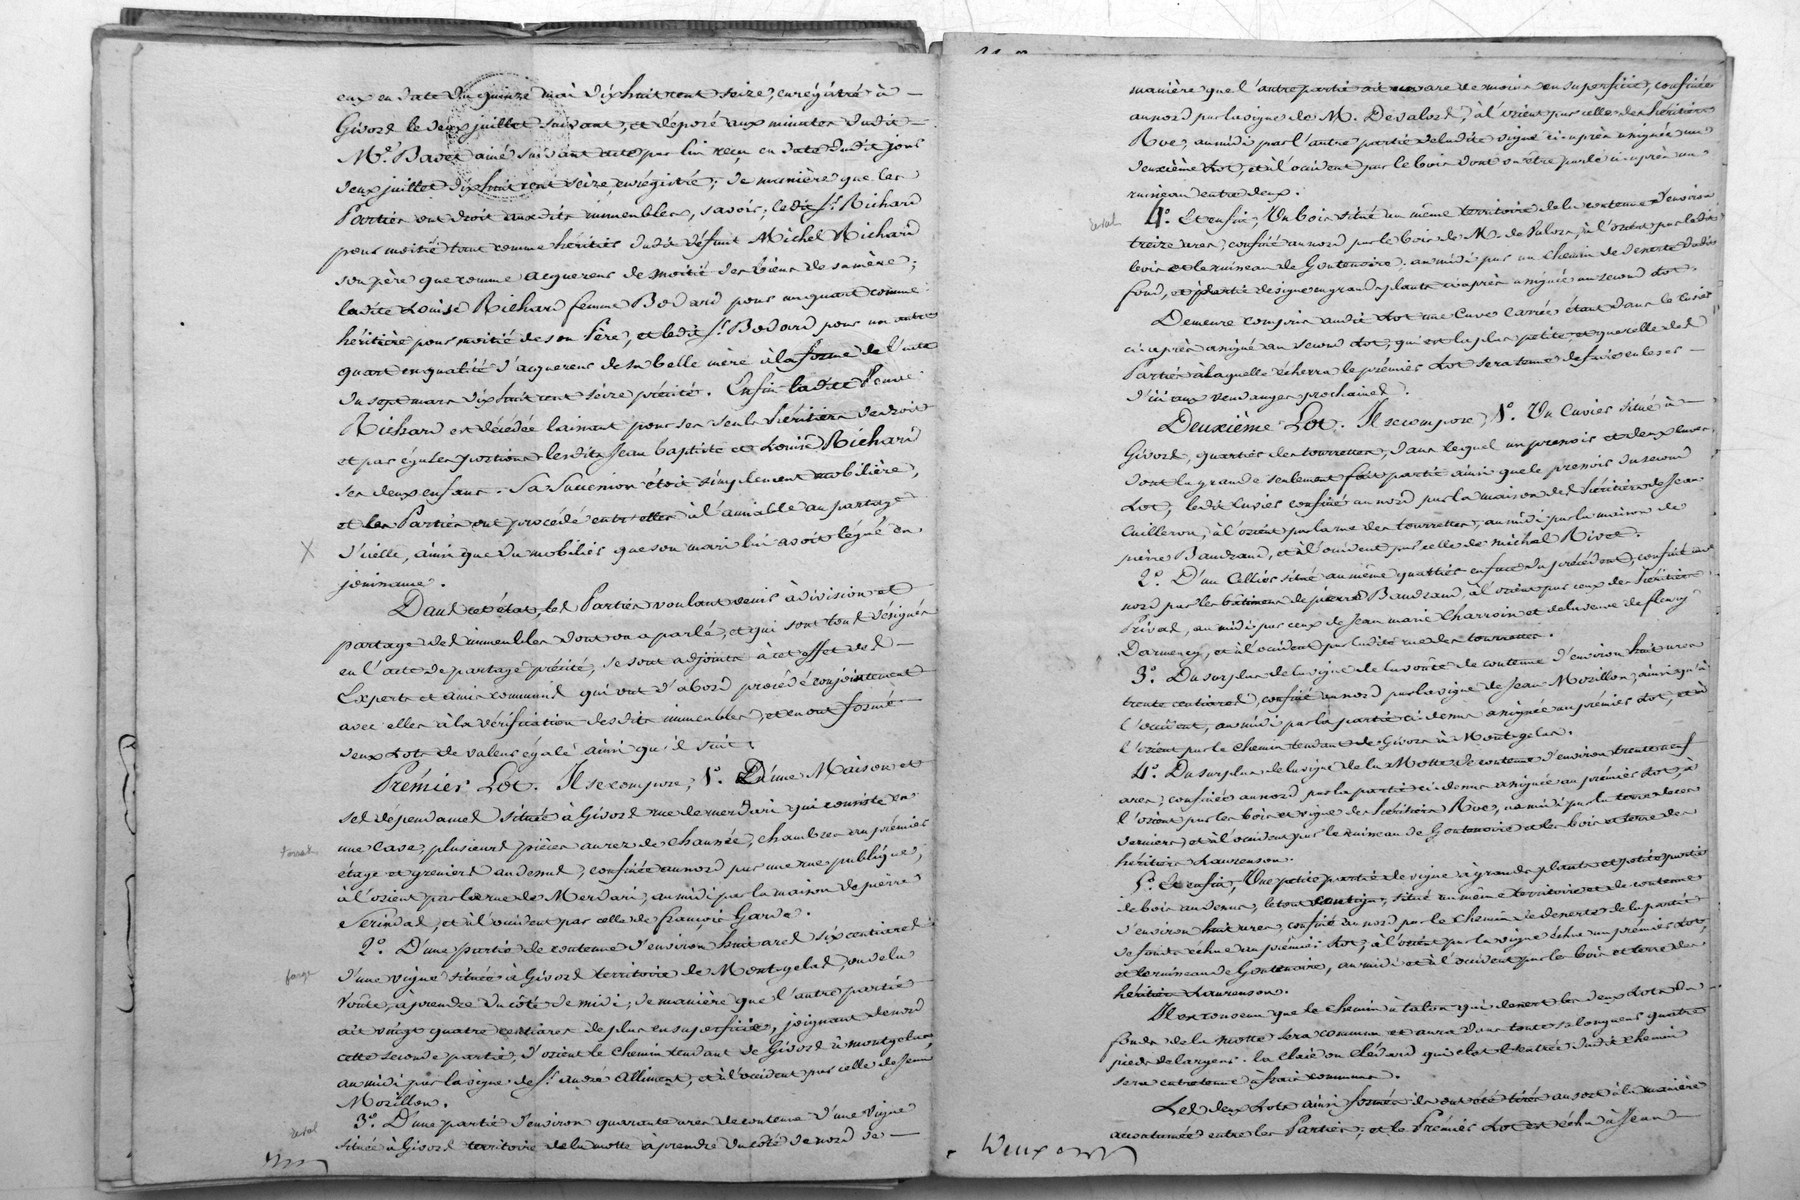 eux en date du quinze mai dix huit cent seize, enrégistré à
Givord le deux juillet suivant, et déposé aux minutes dudit
Me. Badet ainé suivant acte par lui reçu en date dudit jour
deux juillet dix huit cent seize, enrégistré; de manière que les
Parties ont droit auxdits immeubles, savoir; ledit Sr. Richard
pour moitié tant comme héritier dudit défunt Michel Richard
son père que comme acquereur de moitié des biens de sa mère;
ladite Louise Richard femme Bodard pour un quart comme
héritière pour moitié de son Père, et ledit Sr. Bodard pour un autre
quart en qualité d'acquereur de sa belle mère à la forme de l'acte
du sept mars dix huit cent seize précité. Enfin ladite Veuve
Richard est décédée laissant pour ses seuls héritiers de droit
et par égales portions lesdits Jean baptiste et Louise Richard
ses deux enfans. Sa Succession étoit simplement mobilière,
et les Parties ont procédé entr'elles à l'amiable au partage
d'icelle, ainsi que du mobilier que son mari lui avoit légué en
jouissance.
Dans cet état, les Parties voulant venir à division et
partage des immeubles dont on a parlé, et qui sont tous désignés
en l'acte de partage précité, se sont adjoints à cet effet des
Experts et amis communs qui ont d'abord procédé conjointement
avec elles à la vérification desdits immeubles, et en ont formé
deux Lots de valeur égale ainsi qu'il suit:
Prémier Lot. Il se compose; 1°. D'une Maison et
ses dépendances située à Givord rue de merdari qui consiste en
une cave, plusieurs pièces au rez de chaussée, chambres au prémier
étage et greniers au dessus, confinée au nord par une rue publique,
à l'orient par la rue de Merdari, au midi par la maison de pierre
Serindat, et à l'occident par celle de françois Garde.
2°. D'une partie de contenue d'environ huit ares six centiares
d'une vigne située à Givord territoire de Montgelas, ou de la
Voûte, à prendre du côté de midi; de manière que l'autre partie
ait vingt quatre centiares de plus en superficie, joignant de nord
cette seconde partie, d'orient le chemin tendant de Givord à montgelas,
au midi par la vigne de Sr. André Alliment, et à l'occident par celle de Jean
Mozillon.
3°. D'une partie d'environ quarante ares de contenue d'une vigne
située à Givord territoire de la motte à prendre du côté de nord de
manière que l'autre partie ait un are de moins en superficie, confinée
au nord par la vigne de M. Devalors, à l'orient par celle des héritiers
Roe, au midi par l'autre partie de ladite vigne ci-après assignée au
deuxième Lot, et à l'occident par le bois dont on va être parlé ci-après un
ruisseau entre deux.
4°. Et enfin, Un bois situé au même territoire de la contenue d'environ
treize ares, confiné au nord par le bois de M. de Valors, à l'orient par ladite
et le ruisseau de Gontenoire, au midi par un chemin de desserte dudit
fond, et partie de vigne en grands plants ci-après assignée au second Lot.
Demeure compris audit Lot une Cuve carrée étant dans le cuvier
ci-après assigné au second Lot, qui est la plus petite, et que celle des
Parties à laquelle écherra le prémier Lot sera tenue de faire enlever
d'ici aux vendanges prochaines.
Deuxième Lot. Il se compose, 1°. Un Cuvier situé à
Givord, quartier des tourrettes, dans lequel un pressoir et deux cuves
dont la grande seulement fait partie ainsi que le pressoir du second
Lot, ledit Cuvier confiné au nord par la maison des héritiers de Jean
Cuilleron, à l'orient par la rue des tourrettes, au midi par la maison de
pierre Baudrand, et à l'occident par celle de michel Rivet.
2°. D'un Cellier situé au même quartier en face du précédent, confiné au
nord par les bâtimens de pierre Baudrand, à l'orient par ceux des héritiers
Privas, au midi par ceux de Jean marie Charroin et de la veuve de fleury
Darmency, et à l'occident par ladite rue des tourrettes.
3°. Du surplus de la vigne de la voûte de contenue d'environ huit ares
trente centiares, confiné au nord par la vigne de Jean Mozillon, ainsi qu'à
l'occident, au midi par la partie ci-dessus assignée au prémier Lot, et à
l'orient par le chemin tendant de Givors à Montgelas.
4°. Du surplus de la vigne de la Motte de contenue d'environ trente neuf
ares, confinée au nord par la partie ci-dessus assignée au prémier Lot, à
l'orient par les bois et vigne des héritiers Roe, au midi par la terre de ces
derniers, et à l'occident par le ruisseau de Gontenoire et les bois et terre des
héritiers Laurenson.
5°. Et enfin, Une petite partie de vigne à grands plants et petite partie
de bois au dessus, le tout contigu, situé au même territoire et de contenue
d'environ huit ares, confiné au nord par le chemin de desserte de la partie
de fonds échue au prémier Lot, à l'orient par la vigne échue au prémier Lot,
et le ruisseau de Gontenoire, au midi et à l'occident par les bois et terre des
héritiers Laurenson.
Il est convenu que le chemin à talon qui dessert les deux Lots du
fonds de la motte sera commun et aura dans toute sa longueur quatre
pieds de largeur. la claie ou clédard qui clot l'entrée dudit chemin
sera entretenue à frais communs.
Les deux Lots ainsi formés ils ont été tirés au sort à la manière
accoutumée entre les Parties; et le Prémier Lot est échu à Jean